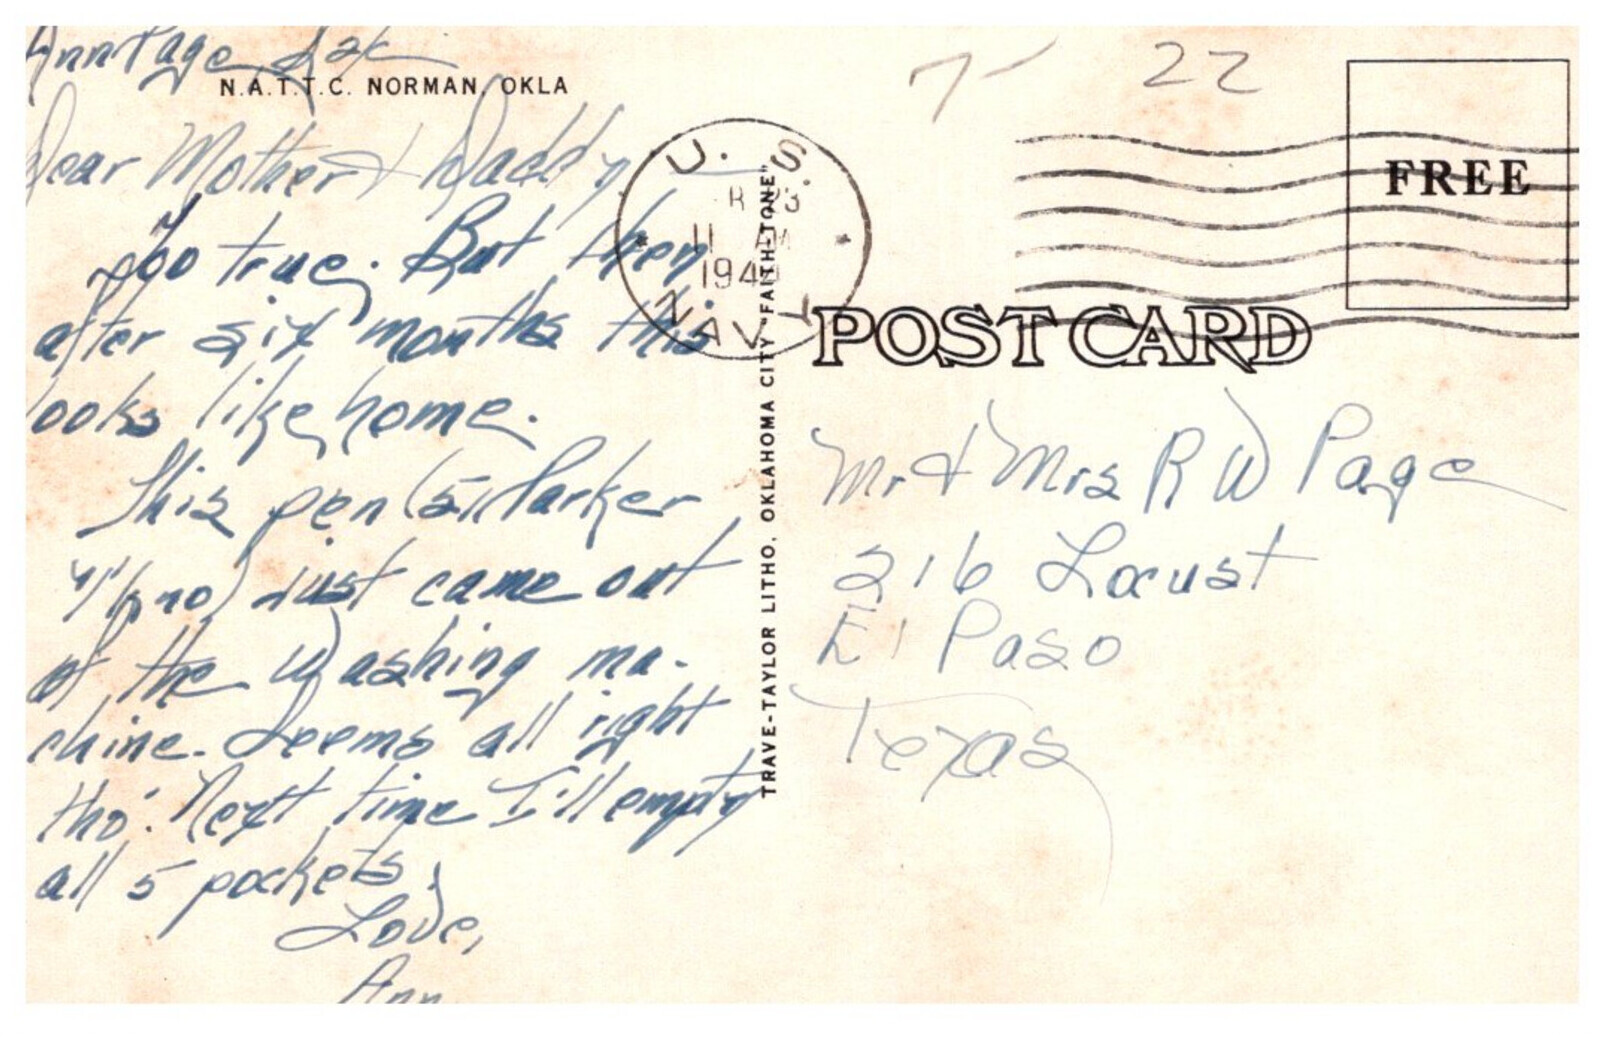 Ann Page S2c
N.A.T.T.C. NORMAN, OKLA
Dear Mother & Daddy
Too true. But then
after six months this
looks like home.
This pen (51 Parker
) just came out
of the washing ma-
chine. Seems all right
tho'. Next time I'll empty
all 5 pockets.
Love,
Ann
U. S.
11 AM
194
NAVY
TRAVE-TAYLOR LITHO. OKLAHOMA CITY "FAITH-TONE"
7 22
FREE
POST CARD
Mr & Mrs R W Page
216 Locust
El Paso
Texas